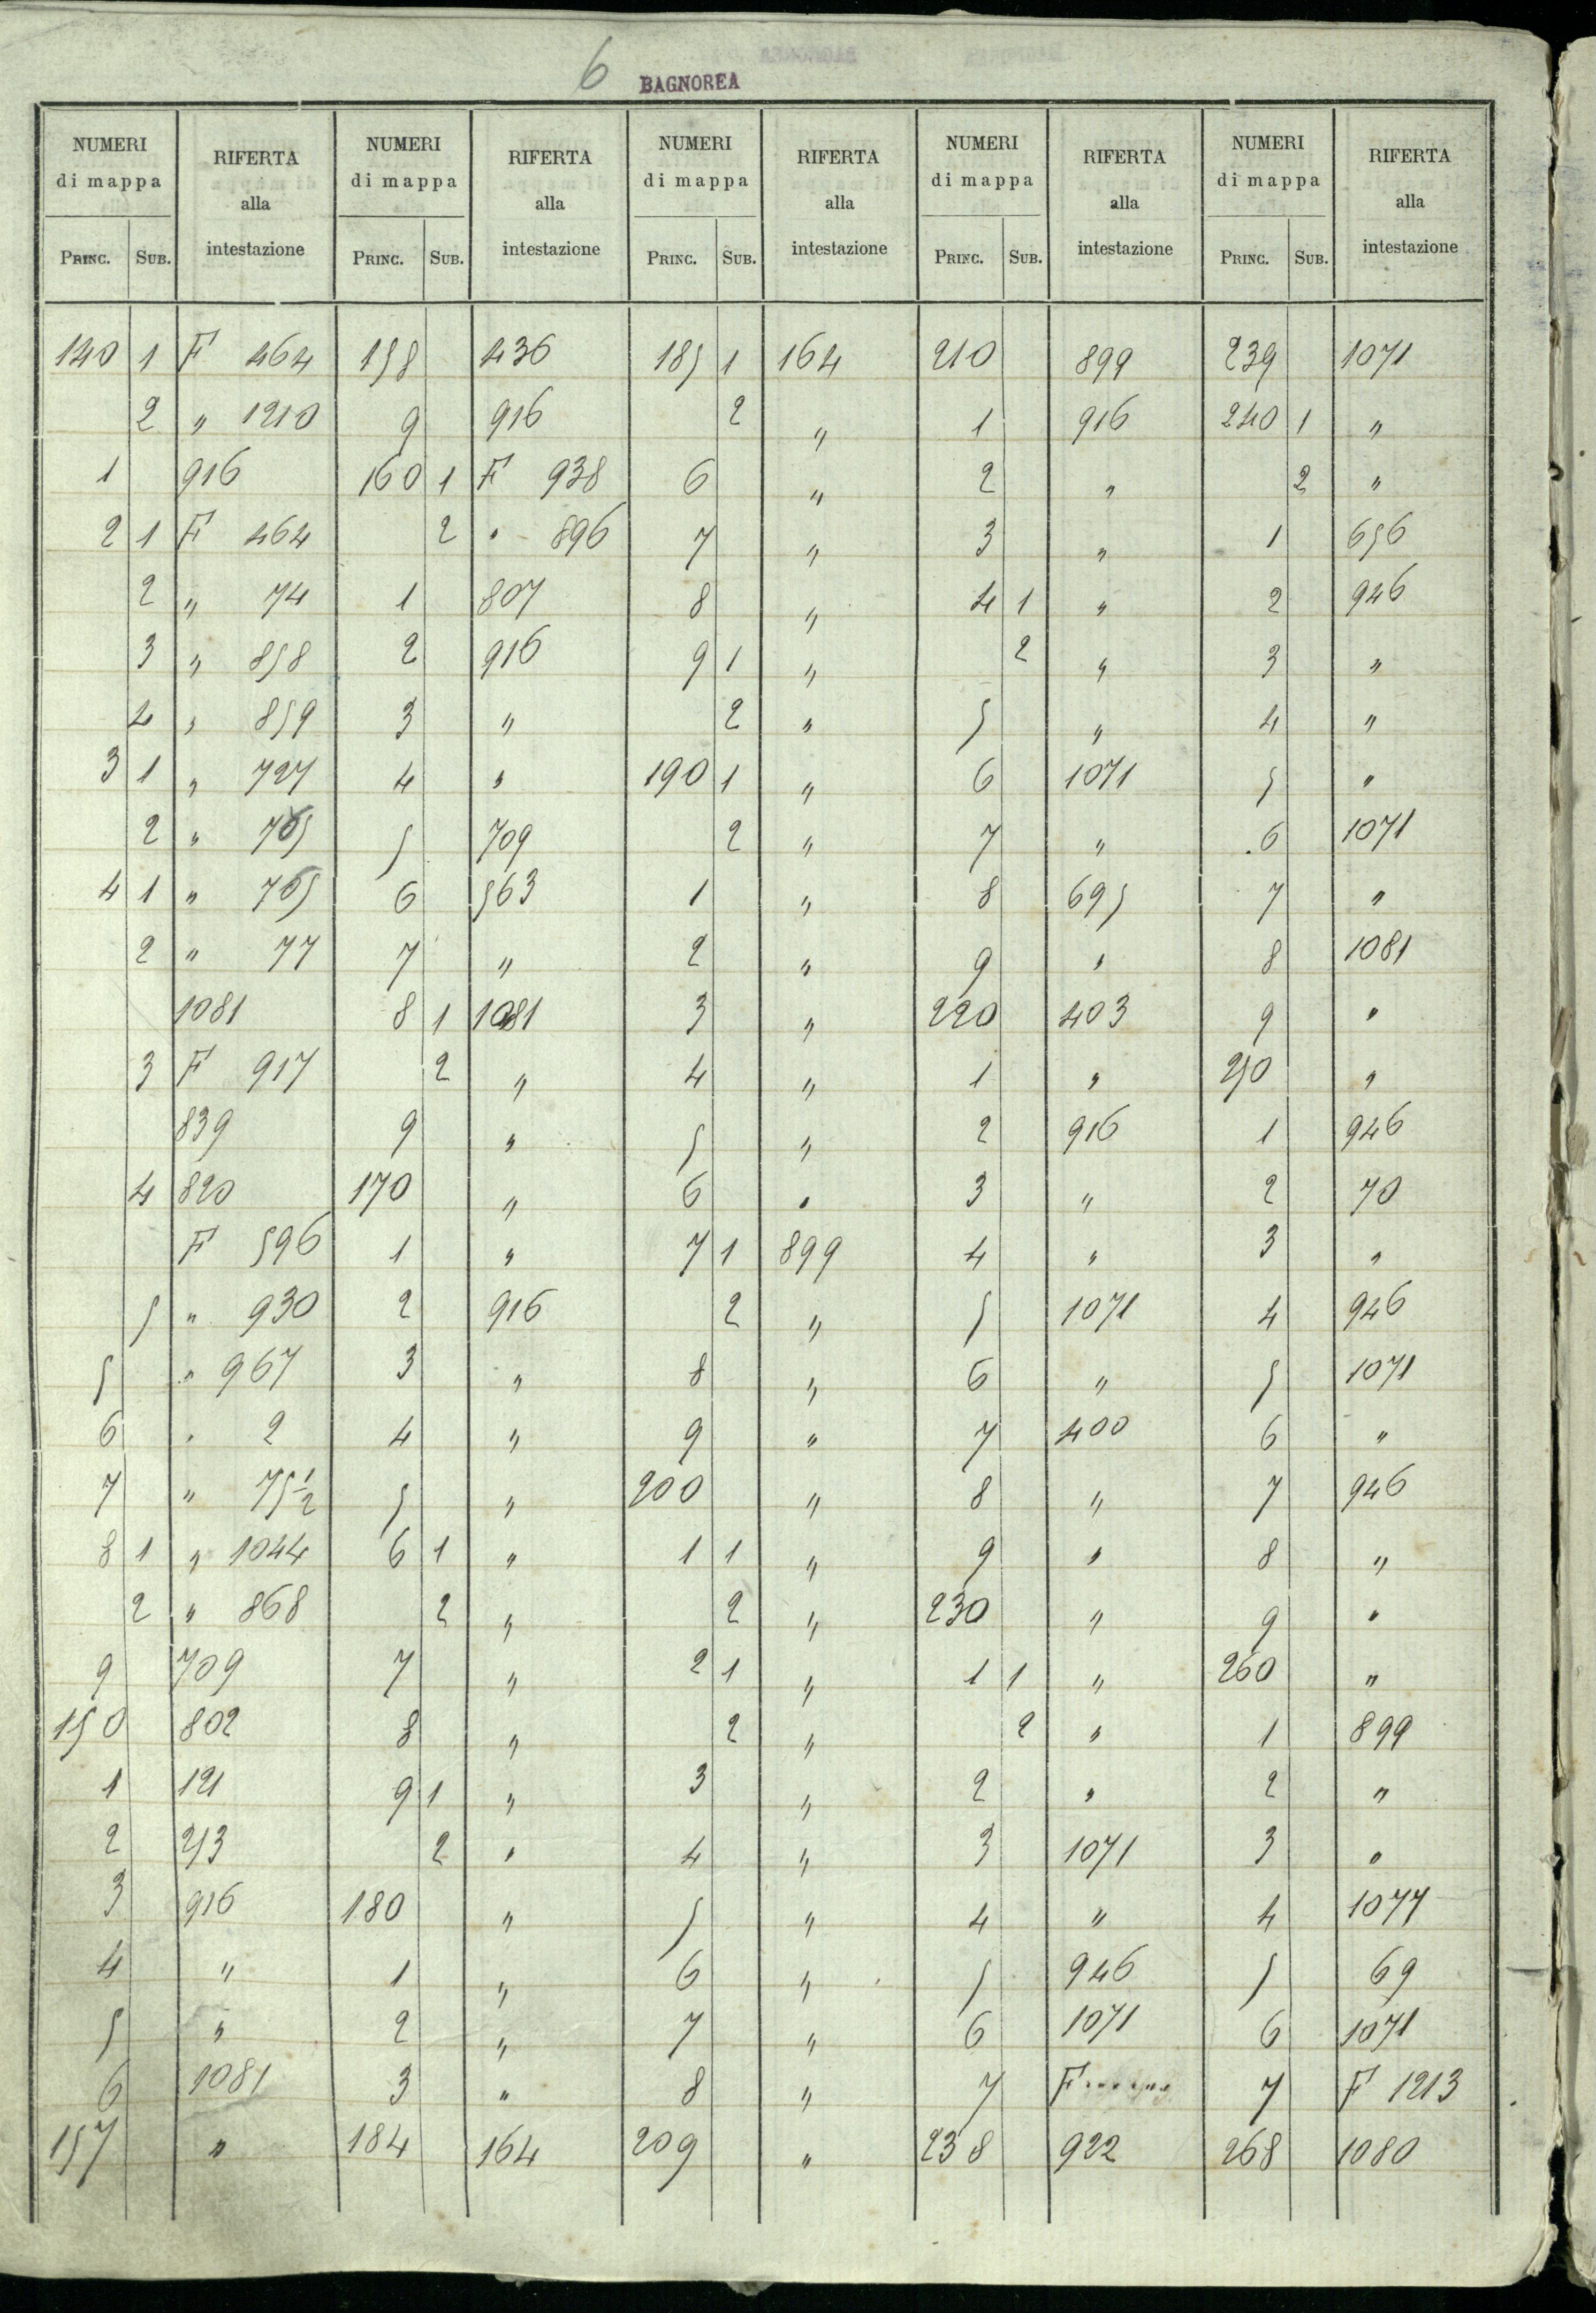 6 BAGNOREA
NUMERI di mappa RIFERTA alla intestazione NUMERI di mappa RIFERTA alla intestazione NUMERI di mappa RIFERTA alla intestazione NUMERI di mappa RIFERTA alla intestazione NUMERI di mappa RIFERTA alla intestazione
PRINC. SUB. PRINC. SUB. PRINC. SUB. PRINC. SUB. PRINC. SUB.
140 1 F 464 158 436 185 1 164 210 899 239 1071
2 " 1210 9 916 2 " 1 916 240 1 "
1 916 160 1 F 938 6 " 2 " 2 "
2 1 F 464 2 " 896 7 " 3 " 1 656
2 " 74 1 807 8 " 4 1 " 2 946
3 " 858 2 916 9 1 " 2 " 3 "
4 " 859 3 " 2 " 5 " 4 "
3 1 " 727 4 " 190 1 " 6 1071 5 "
2 " 765 5 709 2 " 7 " 6 1071
4 1 " 765 6 563 1 " 8 695 7 "
2 " 77 7 " 2 " 9 " 8 1081
1081 8 1 1081 3 " 220 403 9 "
3 F 917 2 " 4 " 1 " 250 "
839 9 " 5 " 2 916 1 946
4 820 170 " 6 " 3 " 2 70
F 596 1 " 7 1 899 4 " 3 "
5 " 930 2 916 2 " 5 1071 4 946
5 " 967 3 " 8 " 6 " 5 1071
6 " 2 4 " 9 " 7 400 6 "
7 " 75 1/2 5 " 200 " 8 " 7 946
8 1 " 1044 6 1 " 1 1 " 9 " 8 "
2 " 868 2 " 2 " 230 " 9 "
9 709 7 " 2 1 " 1 1 " 260 "
150 802 8 " 2 " 2 " 1 899
1 121 9 1 " 3 " 2 " 2 "
2 253 2 " 4 " 3 1071 3 "
3 916 180 " 5 " 4 " 4 1077
4 " 1 " 6 " 5 946 5 69
5 " 2 " 7 " 6 1071 6 1071
6 1081 3 " 8 " 7 F 7 F 1213
157 " 184 164 209 " 238 922 268 1080